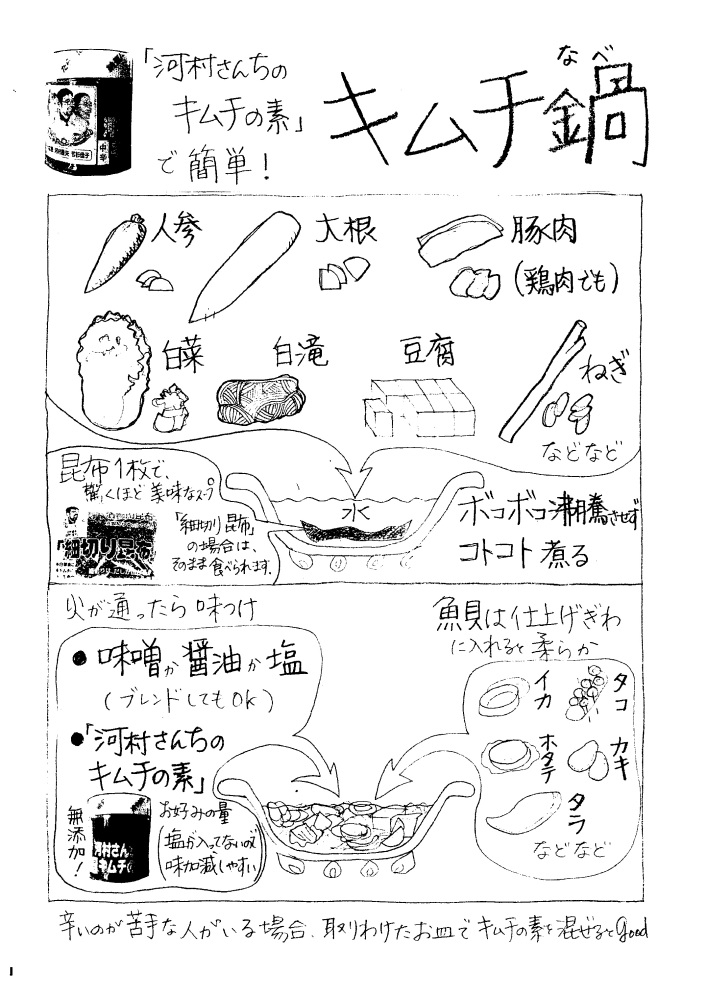 「河村さんちの
キムチの素」
で簡単!
なべ
キムチ鍋
中辛
人参
大根
豚肉
(鶏肉でも)
白菜
白滝
豆腐
ねぎ
などなど
昆布1枚で、
驚くほど美味なスープ
「細切り昆布」
「細切り昆布」
の場合は、
そのまま食べられます.
水
ボコボコ沸騰させず
コトコト煮る
火が通ったら味つけ
●味噌か醤油か塩
(ブレンドしてもOK)
●「河村さんちの
キムチの素」
無添加!
河村さん
キムチ
お好みの量
(塩が入ってないので
味加減しやすい)
魚貝は仕上げぎわ
に入れると柔らか
イカ
タコ
ホタテ
カキ
タラ
などなど
辛いのが苦手な人がいる場合、取りわけたお皿でキムチの素を混ぜるとgood
1